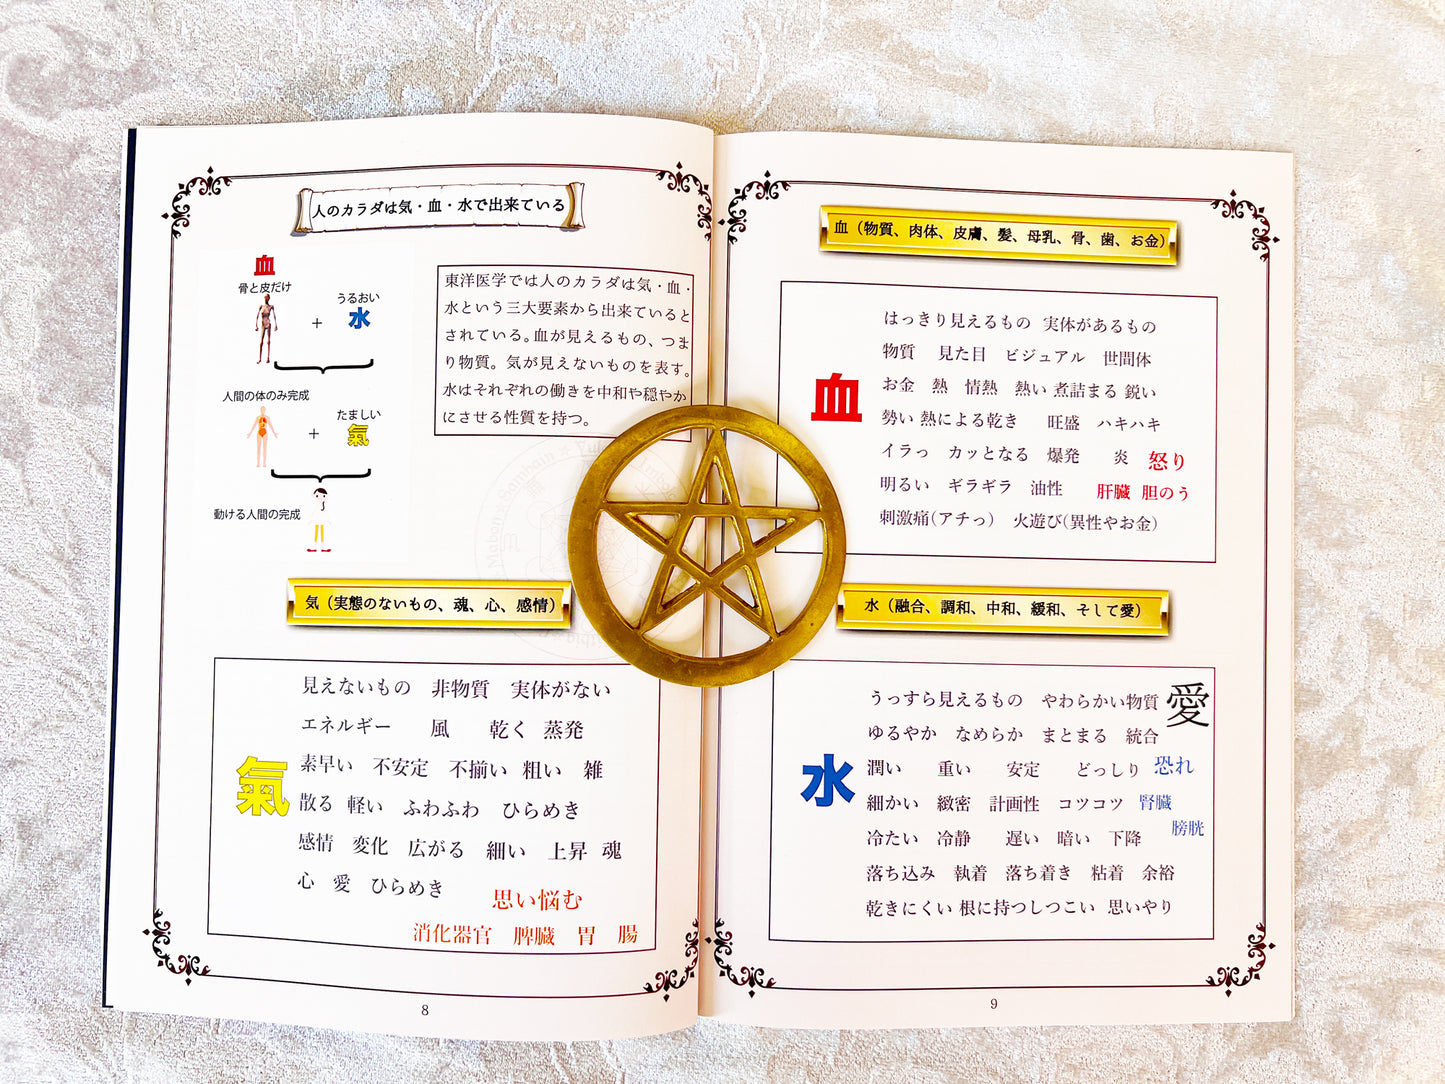 人のカラダは気・血・水で出来ている
血
骨と皮だけ
+
うるおい
水
人間の体のみ完成
+
たましい
氣
動ける人間の完成
東洋医学では人のカラダは気・血・
水という三大要素から出来ていると
されている。血が見えるもの、つま
り物質。気が見えないものを表す。
水はそれぞれの働きを中和や穏やか
にさせる性質を持つ。
Mabon Samhain Yule
気（実態のないもの、魂、心、感情）
氣
見えないもの 非物質 実体がない
エネルギー 風 乾く 蒸発
素早い 不安定 不揃い 粗い 雑
散る 軽い ふわふわ ひらめき
感情 変化 広がる 細い 上昇 魂
心 愛 ひらめき 思い悩む
消化器官 脾臓 胃 腸
8
血（物質、肉体、皮膚、髪、母乳、骨、歯、お金）
血
はっきり見えるもの 実体があるもの
物質 見た目 ビジュアル 世間体
お金 熱 情熱 熱い 煮詰まる 鋭い
勢い 熱による乾き 旺盛 ハキハキ
イラっ カッとなる 爆発 炎 怒り
明るい ギラギラ 油性 肝臓 胆のう
刺激痛(アチっ) 火遊び(異性やお金)
水（融合、調和、中和、緩和、そして愛）
水
うっすら見えるもの やわらかい物質 愛
ゆるやか なめらか まとまる 統合
潤い 重い 安定 どっしり 恐れ
細かい 緻密 計画性 コツコツ 腎臓
膀胱
冷たい 冷静 遅い 暗い 下降
落ち込み 執着 落ち着き 粘着 余裕
乾きにくい 根に持つしつこい 思いやり
9